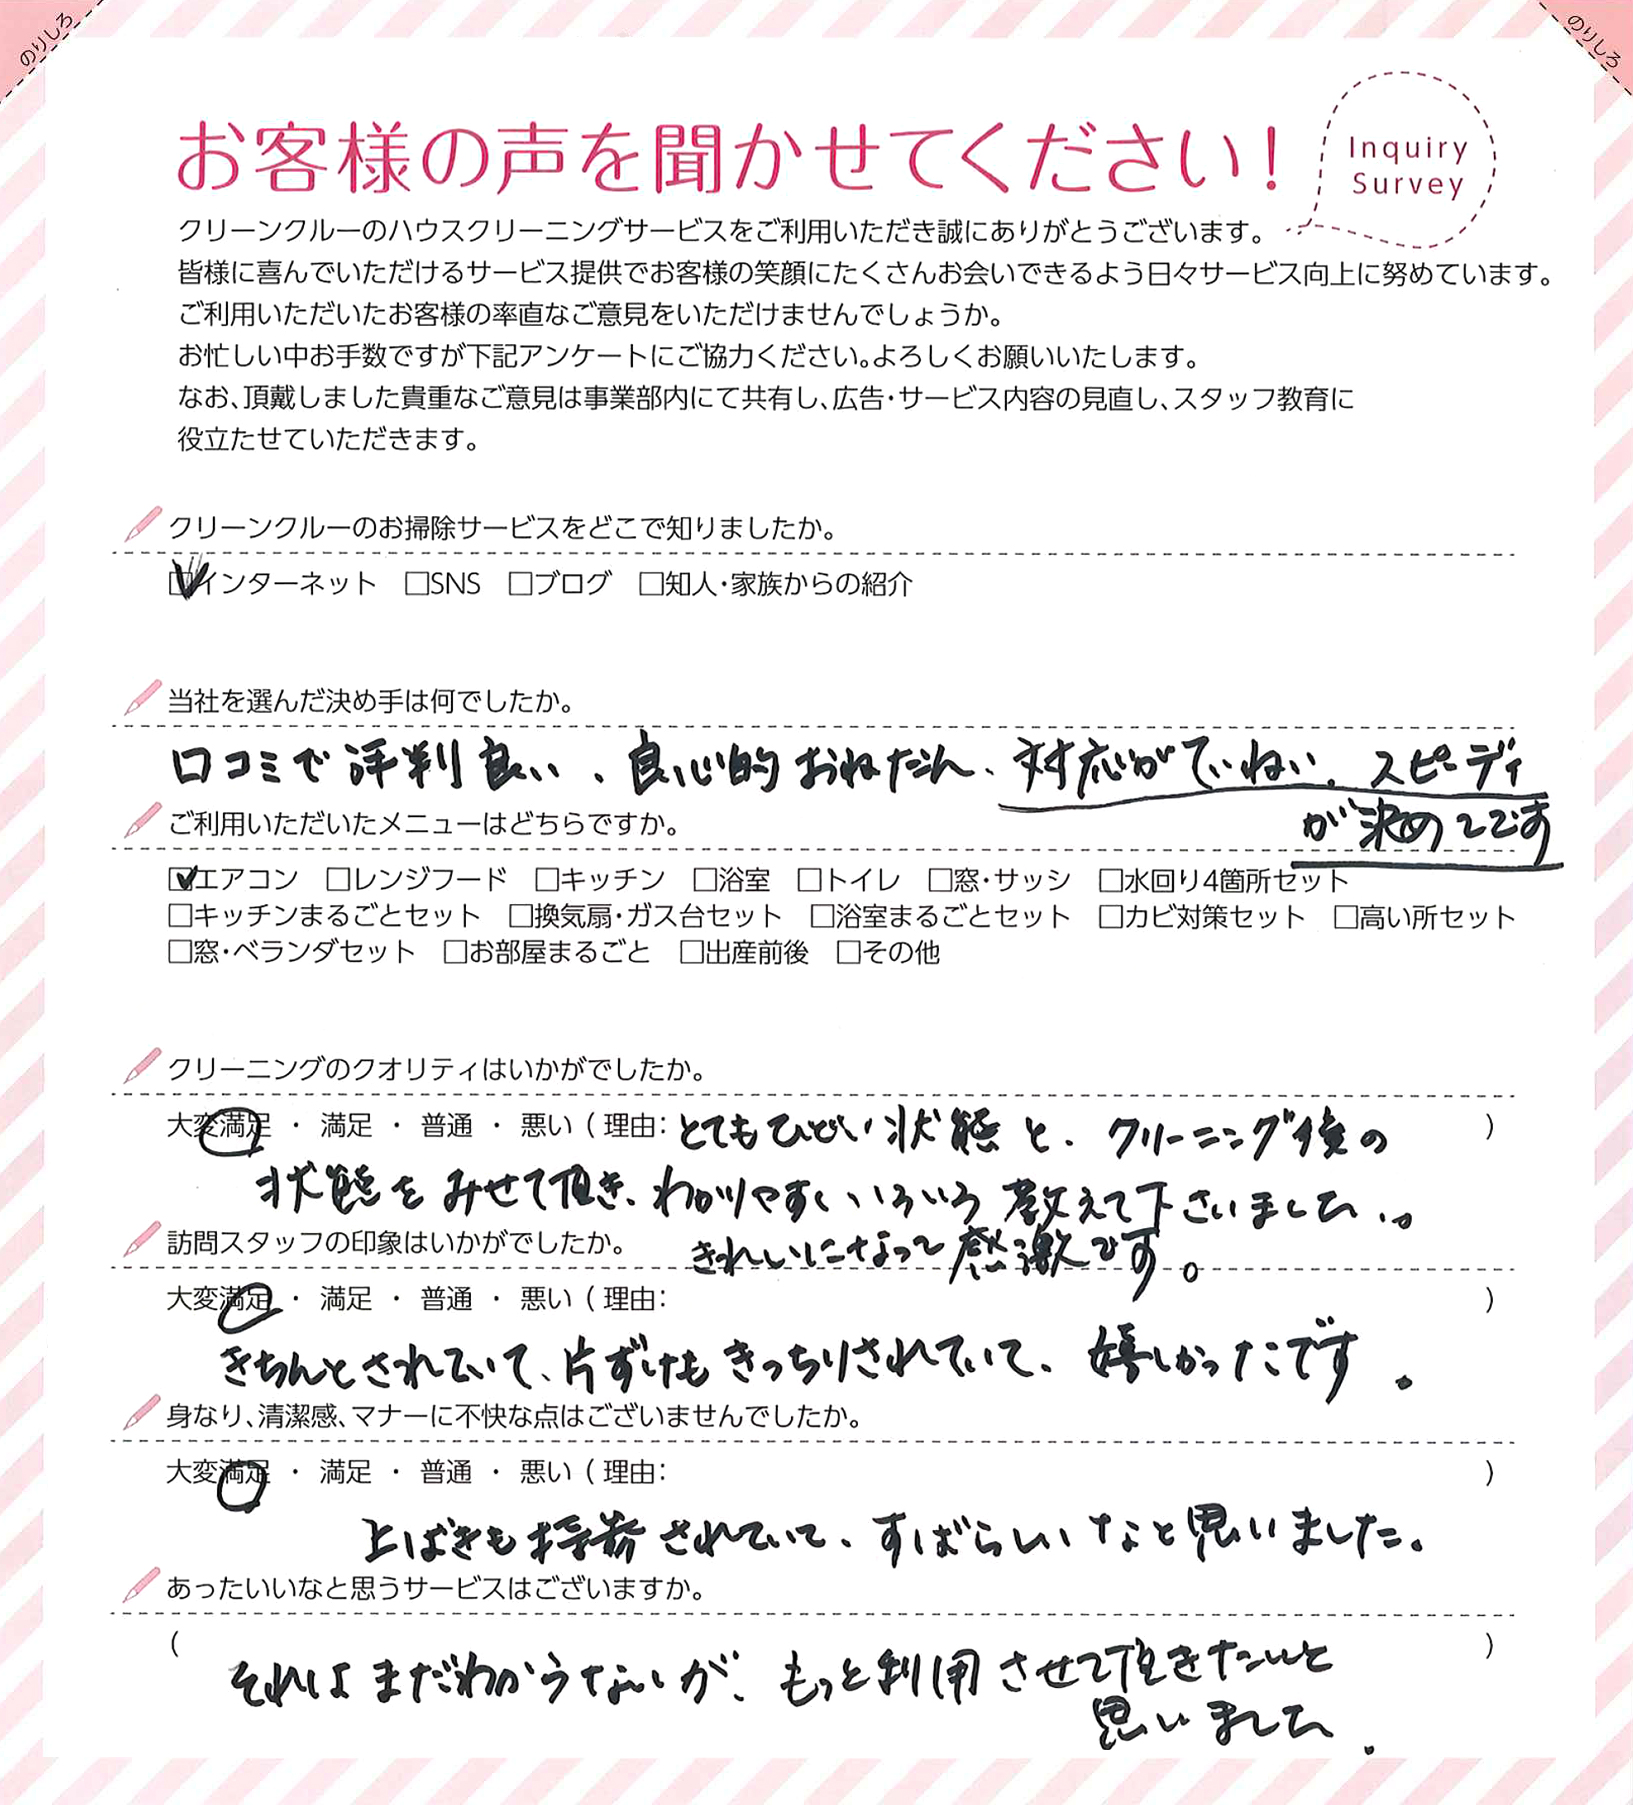 のりしろ
のりしろ
お客様の声を聞かせてください!
Inquiry
Survey
クリーンクルーのハウスクリーニングサービスをご利用いただき誠にありがとうございます。
皆様に喜んでいただけるサービス提供でお客様の笑顔にたくさんお会いできるよう日々サービス向上に努めています。
ご利用いただいたお客様の率直なご意見をいただけませんでしょうか。
お忙しい中お手数ですが下記アンケートにご協力ください。よろしくお願いいたします。
なお、頂戴しました貴重なご意見は事業部内にて共有し、広告・サービス内容の見直し、スタッフ教育に
役立たせていただきます。
クリーンクルーのお掃除サービスをどこで知りましたか。
☑インターネット □SNS □ブログ □知人・家族からの紹介
当社を選んだ決め手は何でしたか。
口コミで評判良い、良心的おねだん、対応がていねい、スピーディ
が決めてです
ご利用いただいたメニューはどちらですか。
☑エアコン □レンジフード □キッチン □浴室 □トイレ □窓・サッシ □水回り4箇所セット
□キッチンまるごとセット □換気扇・ガス台セット □浴室まるごとセット □カビ対策セット □高い所セット
□窓・ベランダセット □お部屋まるごと □出産前後 □その他
クリーニングのクオリティはいかがでしたか。
大変満足 ・ 満足 ・ 普通 ・ 悪い ( 理由: とてもひどい状態と、クリーニング後の )
状態をみせて頂き、わかりやすくいろいろ教えて下さいました。
きれいになって感激です。
訪問スタッフの印象はいかがでしたか。
大変満足 ・ 満足 ・ 普通 ・ 悪い ( 理由: )
きちんとされていて、片ずけもきっちりされていて、嬉しかったです。
身なり、清潔感、マナーに不快な点はございませんでしたか。
大変満足 ・ 満足 ・ 普通 ・ 悪い ( 理由: )
上ばきも持参されていて、すばらしいなと思いました。
あったいいなと思うサービスはございますか。
( )
それはまだわからないが、もっと利用させて頂きたいと
思いました.